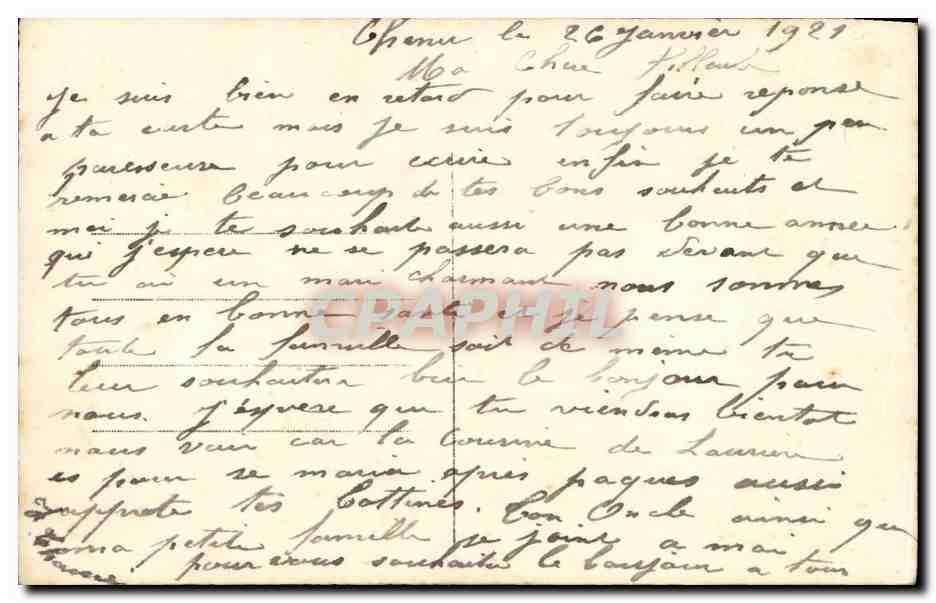 Chenu le 26 Janvier 1921
Ma Chere
Je suis bien en retard pour faire reponse
a ta carte mais je suis toujours un peu
paresseuse pour ecrire enfin je te
remercie beaucoup de tes bons souhaits et
moi je te souhaite aussi une bonne annee
qui j'espere ne se passera pas devant que
tu ai un mari charmant nous sommes
tous en bonne sante et je pense que
toute la famille soit de meme tu
leur souhaitera bien le bonjour pour
nous. J'espere que tu viendras bientot
nous voir car la cousine de Lauriere
es pour se marier apres paques aussi
apprete tes bottines. Ton Oncle ainsi que
ma petite famille se joint a moi
pour vous souhaiter le bonjour a tous
CPAPHIL